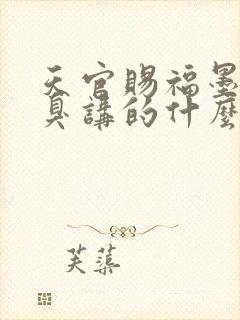 天官賜福墨
具講的什麼
芙蕖